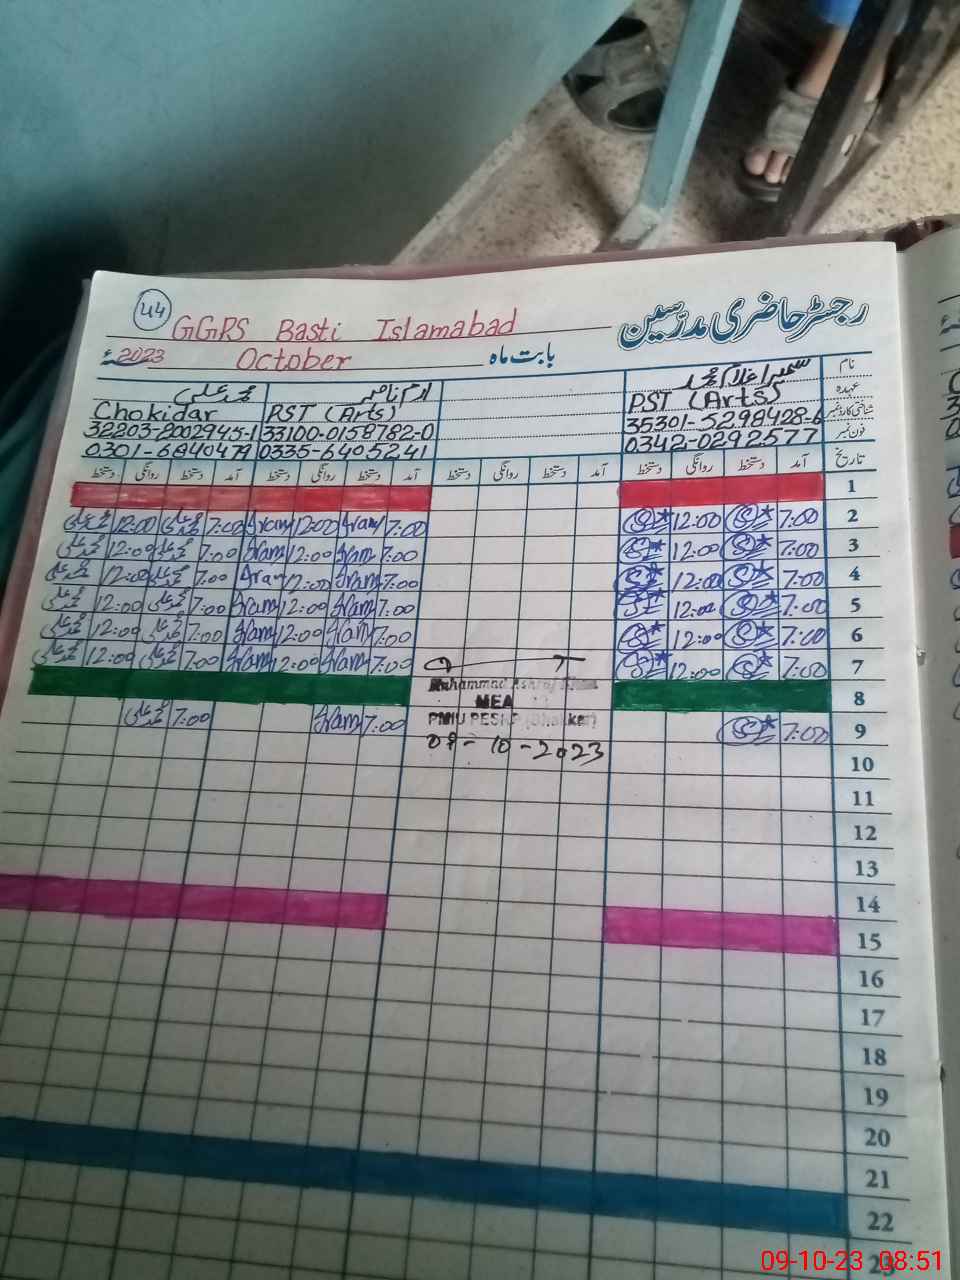 44
GGPS Basti Islamabad
رجسٹر حاضری مدرسین
2023ء October بابت ماہ
محمد علی ارم ناصر سمیرا غلام محمد نام
Chokidar PST (Arts) PST (Arts) عہدہ
32203-2002945-1 33100-0158782-0 35301-5298428-6 شناختی کارڈ نمبر
0301-6840479 0335-6405241 0342-0292577 فون نمبر
دستخط روانگی دستخط آمد دستخط روانگی دستخط آمد دستخط دستخط دستخط روانگی دستخط آمد تاریخ
1
محمد علی 12:00 محمد علی 7:00 Iram 12:00 Iram 7:00 12:00 7:00 2
محمد علی 12:00 محمد علی 7:00 Iram 12:00 Iram 7:00 12:00 7:00 3
محمد علی 12:00 محمد علی 7:00 Iram 12:00 Iram 7:00 12:00 7:00 4
محمد علی 12:00 محمد علی 7:00 Iram 12:00 Iram 7:00 12:00 7:00 5
محمد علی 12:00 محمد علی 7:00 Iram 12:00 Iram 7:00 12:00 7:00 6
محمد علی 12:00 محمد علی 7:00 Iram 12:00 Iram 7:00 12:00 7:00 7
Muhammad Ashraf Khan
8
MEA
PMIU PESRP (Bhakkar)
محمد علی 7:00 Iram 7:00 7:00 9
09-10-2023
10
11
12
13
14
15
16
17
18
19
20
21
22
23
09-10-23 08:51